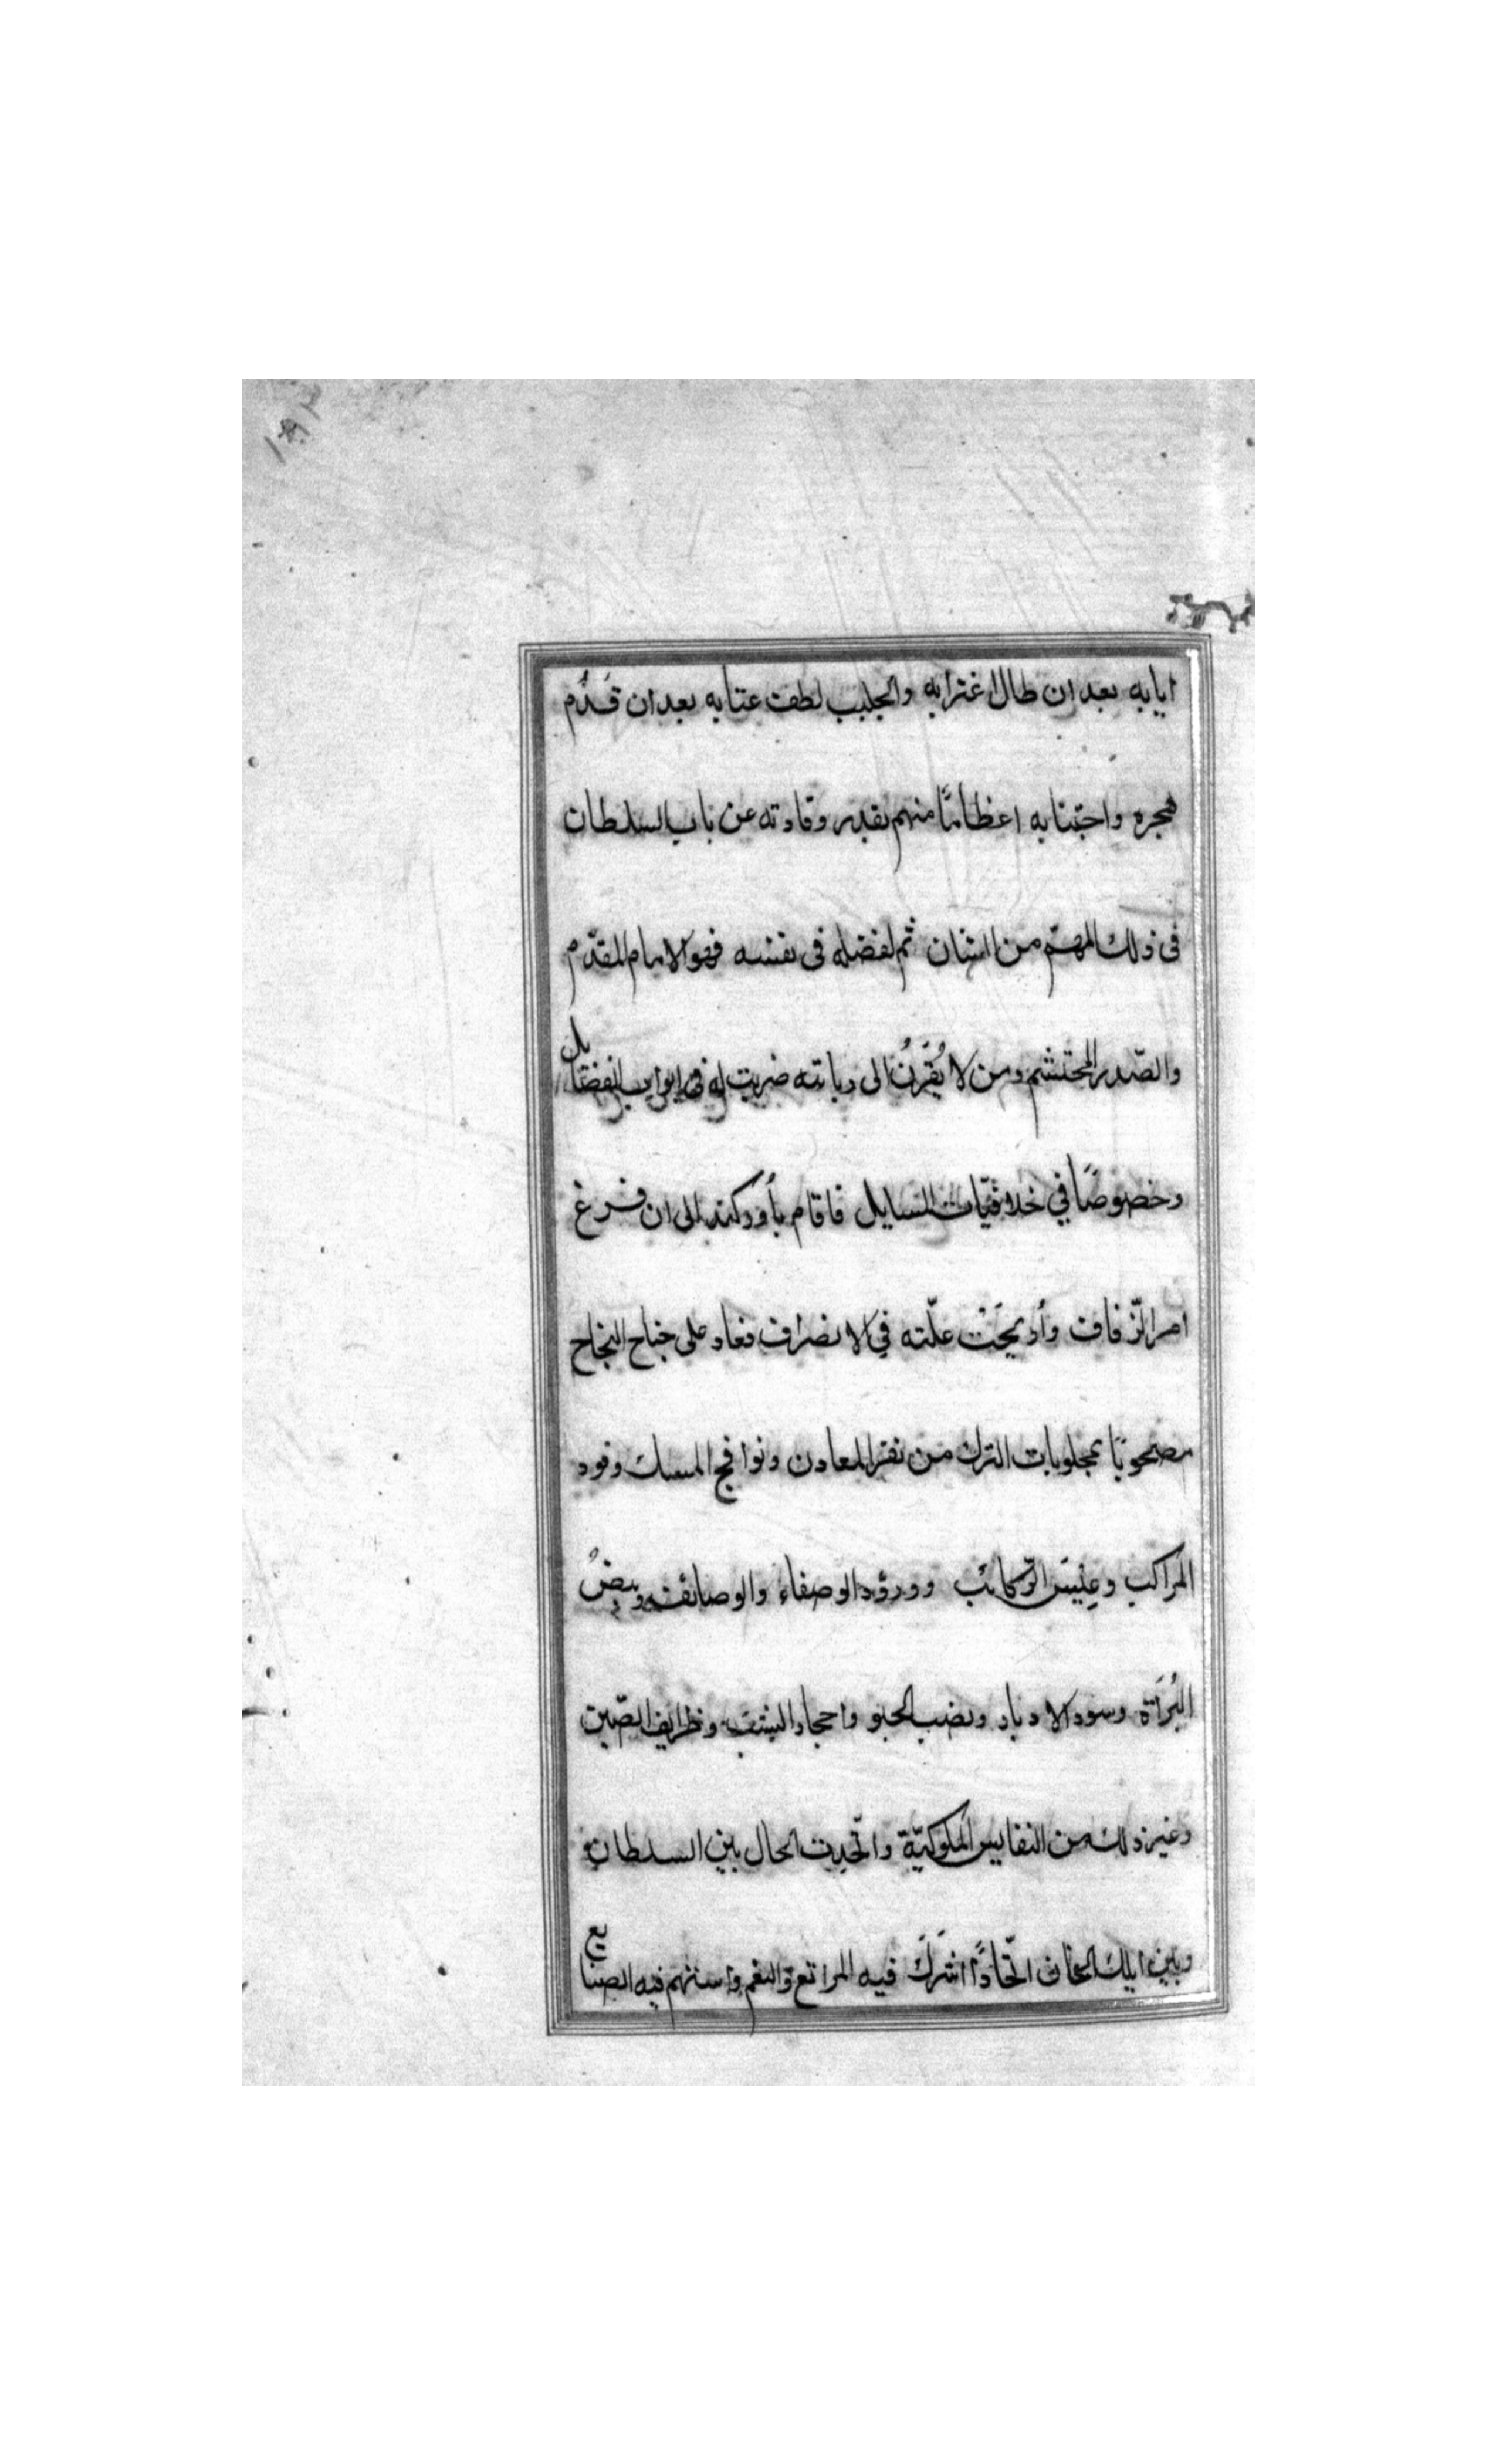 ١٨٢
ايابه بعد ان طال اغترابه والجليب لطف عتابه بعد ان قدُم
هجره واجتنابه اعظامًا منهم بقدر وقادته عن باب السلطان
فى ذلك المهمّ من الشان ثم لفضله فى نفسه فهو الامام المقدّم
والصّدر المحتشم ومن لا يُقرَنُ الى ديانته ضريب له فى ابواب الفضايل
وخصوصًا في خلافيّات المسايل فاقام بأوركند الى ان فرغ
امر الزّفاف وأزيحَت علّته في الانصراف فعاد على جناح النجاح
مصحوبًا بمجلوبات الترك من نقر المعادن ونوافج المسك وقود
المراكب وعِيسَ الرّكائب وورود الوصفاء والوصائف وبيضُ
البُزاة وسود الاوبار ونصب الختو واحجار اليشب وظرايف الصّين
وغير ذلك من النفايس الملوكيّة واتّحدت الحال بين السلطان
وبين ايلك الخان اتّحادًا اشترَكَ فيه المراتع والنعم واستهم فيه الصنايع